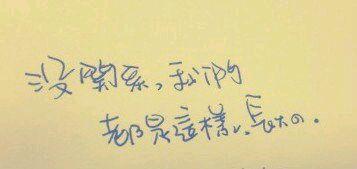 沒關係，我們
都是這樣、長大的.